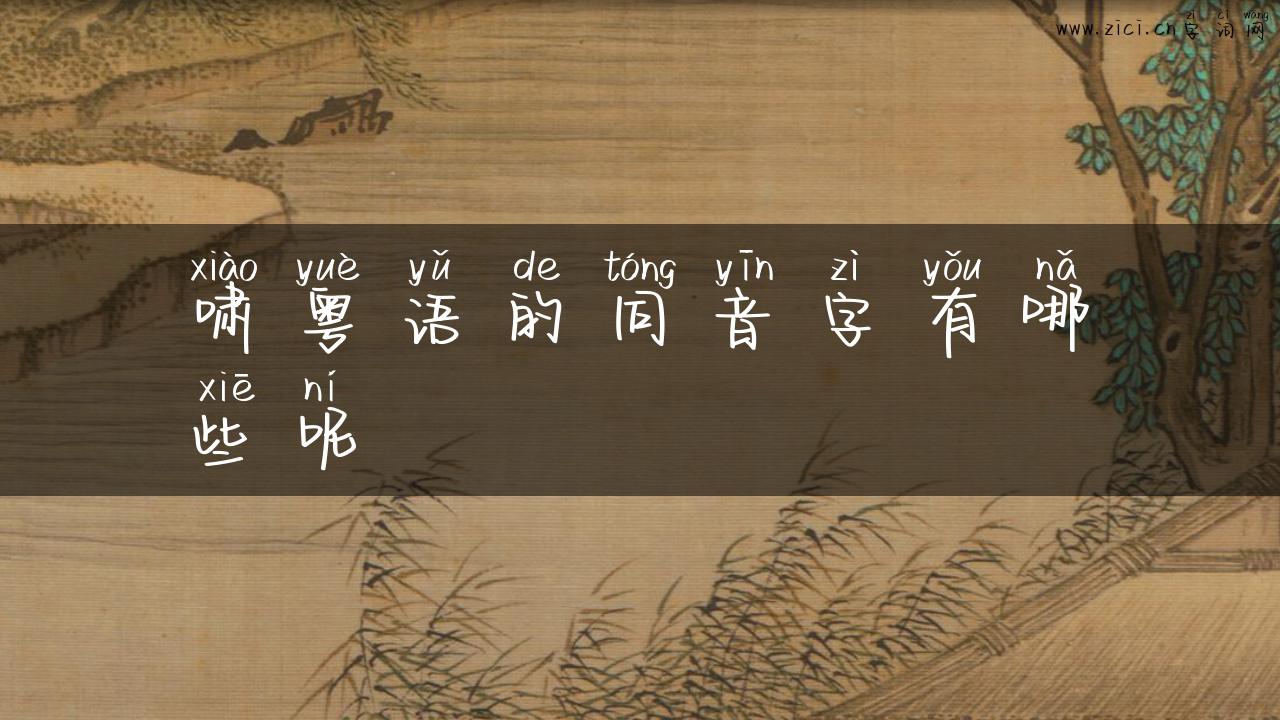 zì cí wǎng
www.zici.cn字词网
xiào yuè yǔ de tóng yīn zì yǒu nǎ
啸粤语的同音字有哪
xiē ní
些呢